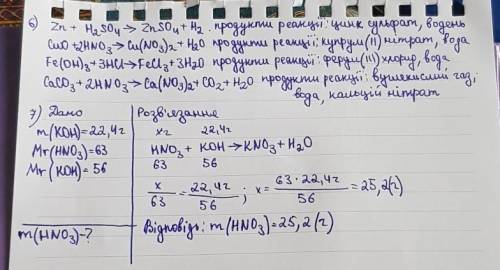 6) Zn + H₂SO₄ → ZnSO₄ + H₂. продукти реакції: цинк сульфат, водень
CuO + 2HNO₃ → Cu(NO₃)₂ + H₂O продукти реакції: купрум(II) нітрат, вода
Fe(OH)₃ + 3HCl → FeCl₃ + 3H₂O продукти реакції: ферум(III) хлорид, вода
CaCO₃ + 2HNO₃ → Ca(NO₃)₂ + CO₂ + H₂O продукти реакції: вуглекислий газ,
вода, кальцій нітрат
7) Дано
m(KOH) = 22,4г
Mr(HNO₃) = 63
Mr(KOH) = 56
m(HNO₃) - ?
Розв'язання
xг 22,4г
HNO₃ + KOH → KNO₃ + H₂O
63 56
x/63 = 22,4г/56 ; x = 63·22,4г/56 = 25,2(г)
Відповідь: m(HNO₃) = 25,2(г)